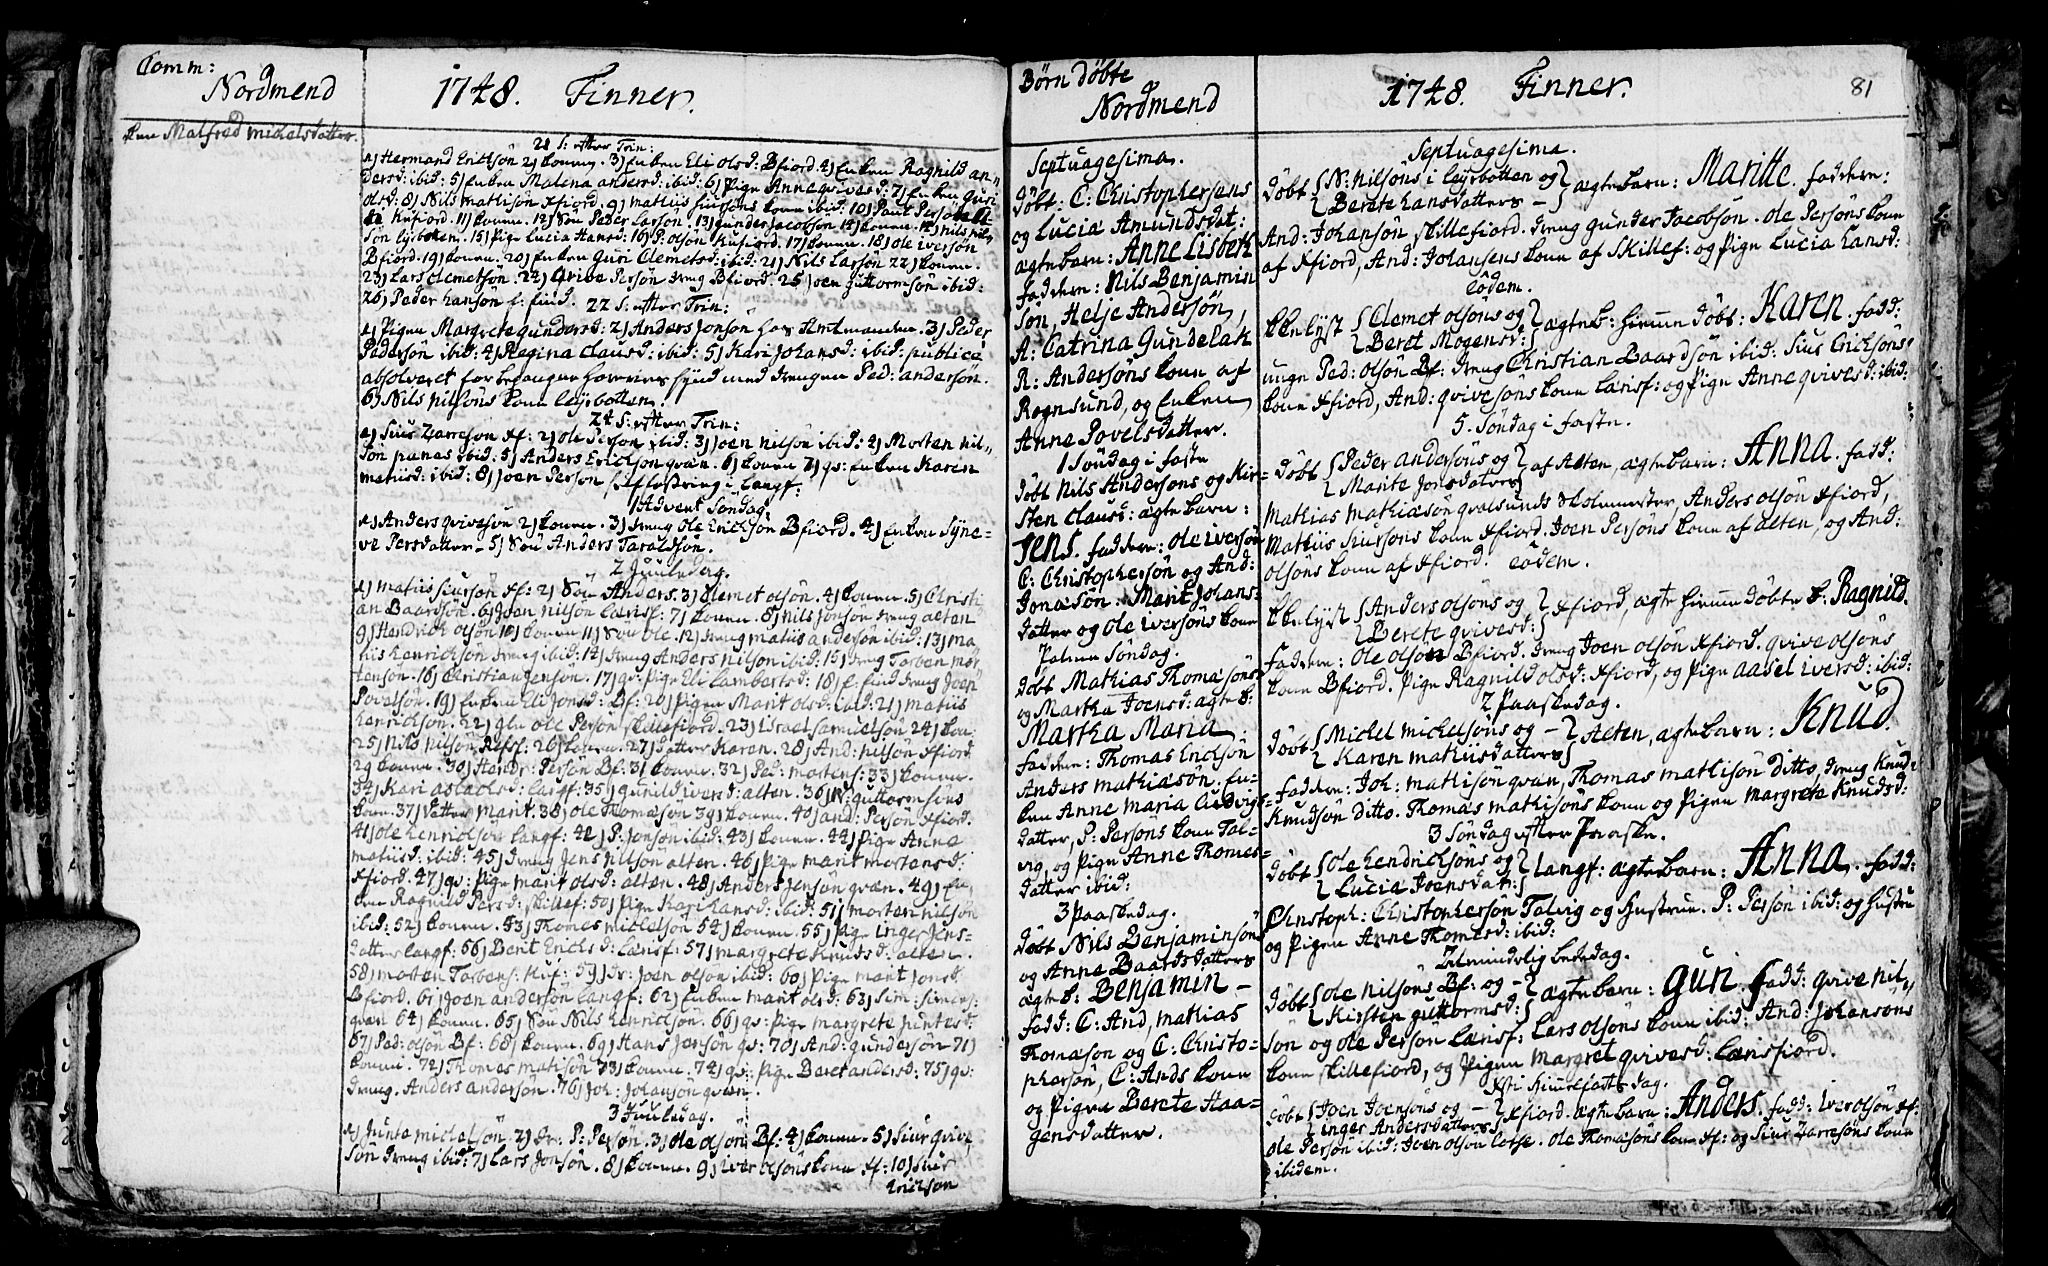 Comm:
Nordmend
1748. Finner.
kone Malfred Michelsdatter.
21 S: efter Trin:
1) Hermand Erickson 2) konen. 3) Enken Eli olsd: Bfiord. 4) Enken Ragnild an=
dersd: ibid: 5) Enken Malena andersd: ibid: 6) Pige Anne qvivesd: 7) Enken Guri
olsd: 8) Nils mathison Xfiord. 9) matiis Siursons kone ibid: 10) Paul Person
Kufiord. 11) konen. 12) Son Peder Larson. 13) gunder Jacobson 14) konen. nils nil=
son leyrbotten. 15) Pige Lucia Hansd: 16) P: olson Kufiord. 17) konen. 18) ole iverson
Bfiord. 19) konen. 20) Enken Guri Clemetsd: ibid: 21) Nils Larson 22) konen.
23) Lars Clemetson. 24) qvive Person dreng Bfiord. 25) Joen guttormson ibid:
26) Peder hanson f: find.
22 S: efter Trin:
1) Pigen Margrete gundersd: 2) Anders Jonson hos Amtmanden. 3) Peder
Pederson ibid: 4) Regina Clausd: ibid: 5) Kari Johansd: ibid: publice
absolveret for begangen horeries synd med drengen Ped: anderson.
6) Nils nilsons kone leyrbotten.
24 S: efter Trin:
1) Siur Zarreson Xf: 2) ole Person ibid: 3) Joen nilson ibid: 4) Morten nil=
son ibid: 5) Anders Erickson qvæn. 6) konen 7) qs: Enken Karen
matiisd: ibid: 8) Joen Person i langf:
1 Advent Søndag
1) Anders qviveson 2) konen. 3) dreng ole Erickson Bfiord. 4) Enken Syne=
ve Persdatter. 5) Son Anders Taraldson.
2 Juuledag.
1) matiis Siurson Xf: 2) Son Anders. 3) Clemet olson. 4) konen. 5) Christi
an Baardson. 6) Joen nilson Larsf: 7) konen. 8) Nils Jonson dreng alten
9) Hendrick olson 10) konen 11) Son ole. 12) dreng matiis anderson ibid: 13) ma
this henrickson dreng ibid: 14) dreng Anders nilson ibid: 15) dreng Torben mor
tenson. 16) Christian Jenson. 17) qv: Pige Eli Lambertsd: 18) f: find dreng Joen
Povelson. 19) Enken Eli Jonsd: Bf: 20) Pigen Marit olsd: ibid: 21) matiis
henrickson. 22) gln ole Person skillefiord. 23) israel samuelson 24) kon:
25) Nils nilson Refsf: 26) konen. 27) datter Karen. 28) And: nilson Xfiord
29 konen. 30) Hendr: Person Bf: 31 konen. 32) Ped: mortens: 33) konen.
34) Kari aslacksd: langf: 35) gunild iversd: alten. 36) N: guttormsons
kone. 37) datter marit. 38) ole Thomason 39) konen. 40) and: Person Xfiord.
41) ole henrickson langf: 42) P: Jonson ibid: 43) konen. 44) Pige Anna
matiisd: ibid: 45) dreng Jens nilson alten. 46) Pige marit mortensd:
Xfiord. 47) qs: Pige marit olsd: alten. 48) Anders Jenson qvæn. 49) En=
ken Ragnild Persd: skillef: 50) Pige Kari hansd: ibid: 51) morten nilson
ibid: 52) konen. 53) Thomas mickelson 54) konen. 55) Pige inger Jens=
datter langf: 56) Berit Ericksd: Larsf: 57) margrete Knudsd: alten.
58) morten Torbens: Kuf: 59) dr: Joen olson ibid: 60) Pige marit Jonsd:
Bfiord. 61) Joen anderson langf: 62) Enken marit olsd: 63) Sim: Simens:
qvæn 64) konen. 65) Son Nils henrickson. 66) qs: Pige margrete puntesd:
67) Ped: olson Bf: 68) konen. 69) Hans Jonson qs: 70) And: gunderson 71)
konen. 72) Thomas matison 73) konen. 74) qs: Pige Beret andersd: 75) qs:
dreng. Anders anderson. 76) Joh: Johanson qvæn.
3 Juuledag.
1) Junte mickelson 2) dr: P: Person. 3) ole olson Bf: 4) konen. 5) Siur qvive
son dreng ibid: 7) Lars Jonson. 8) konen. 9) iver olsons kone Xf: 10) Siur
Erickson
Børn døbte
Nordmend
Septuagesima.
døbt: C: Christophersens
og Lucia Amundsdat:
ægtebarn: Anne Lisbeth
fadderne: Nils Benjamin
son, Helje Anderson,
A: Catrina Gundelak
R: Andersons kone af
Rognsund, og Enken
Anne Povelsdatter.
1 Søndag i faste
døbt Nils Andersons og Kir=
sten Clausd: ægtebarn:
Jens. fadderne: ole iverson
C: Christopherson og And:
Jonason. Marit Johans=
datter og ole iversons kone
Palme Søndag.
døbt Mathias Thomasons
og Martha Joensd: ægte b:
Martha Maria
fadderne: Thomas Erickson
Anders mathiason. En=
ken Anne Maria Ludvigs=
datter, P: Persons kone Tal=
vig, og Pigen Anne Thomes=
datter ibid:
3 paaskedag.
døbt Nils Benjaminsons
og Anne Baardsdatters
ægte b: Benjamin
fadd: C: And, mathias
Thomason og C: Christo=
pherson, C: Ands kone
og Pigen Berete Haa=
gensdatter.
1748. Finner.
81
Septuagesima.
døbt { N: nilsons i leyrbotten og } ægtebarn: Maritte. fadderne:
{ Berete hansdatters
And: Johanson skillefiord. dreng gunder Jacobson. ole Persons kone
af Xfiord, And: Johansens kone af skillef: og Pigen Lucia Hansd:
eodem.
Kkenlyst { Clemet olsons og } ægte b: hiemme døbt: Karen. fadd:
{ Beret Mogensd:
unge Ped: olson Bf: dreng Christian Baardson ibid: Siur Ericksons
kone Xfiord, And: qvivesons kone Larsf: og Pigen Anne qvivesd: ibid:
5. Søndag i faste.
døbt { Peder andersons og } af Alten, ægtebarn: Anna. fadd:
{ Marite Jonsdatters
Mathias mathiason qvalsunds skolemester, Anders olson Xfiord,
Matiis Siursons kone Xfiord. Joen Persons kone af alten, og And:
olsons kone af Xfiord. eodem.
Kkenlyst { Anders olsons og } Xfiord, ægte hiemme døbte b: Ragnild.
{ Berete qvivesd:
fadderne: ole olson Bfiord. dreng Joen olson Xfiord. qvive olsons
kone Bfiord. Pigen Ragnild olsd: Xfiord, og Pigen aasel iversd: ibid:
2 Paaskedag.
døbt { Michel mickelsons og } Alten, ægtebarn: Knud.
{ Karen mathiisdatters
fadderne: Joh: mathison qvæn, Thomas mathison ditto, dreng Knud
Knudson ditto. Thomas mathisons kone og Pigen margrete Knudsd:
3 Søndag efter Paaske.
døbt { ole hendricksons og } langf: ægtebarn: Anna. fadd:
{ Lucia Joensdat:
Christoph: Christopherson Talvig og hustrue. P: Person ibid: og hustru
og Pigen Anne Thomesd: ibid:
Almindelig bededag.
døbt { ole nilsons Bf: og } ægtebarn: Guri. fadd: qvive nil=
{ Kirsten guttormsd:
son og ole Person Larsf: Lars olsons kone ibid: And: Johansons
kone skillefiord, og Pigen Margret qvivesd: Larsfiord.
Xsti himmelfarts dag.
døbt { Joen Joensons og } Xfiord. ægtebarn: Anders. fadd: iver olson Xf:
{ inger Andersdatters
ole Person ibid: Joen olson Lerse. ole Thomasons kone Xf: og Siur Zarresons kone
ibidem.